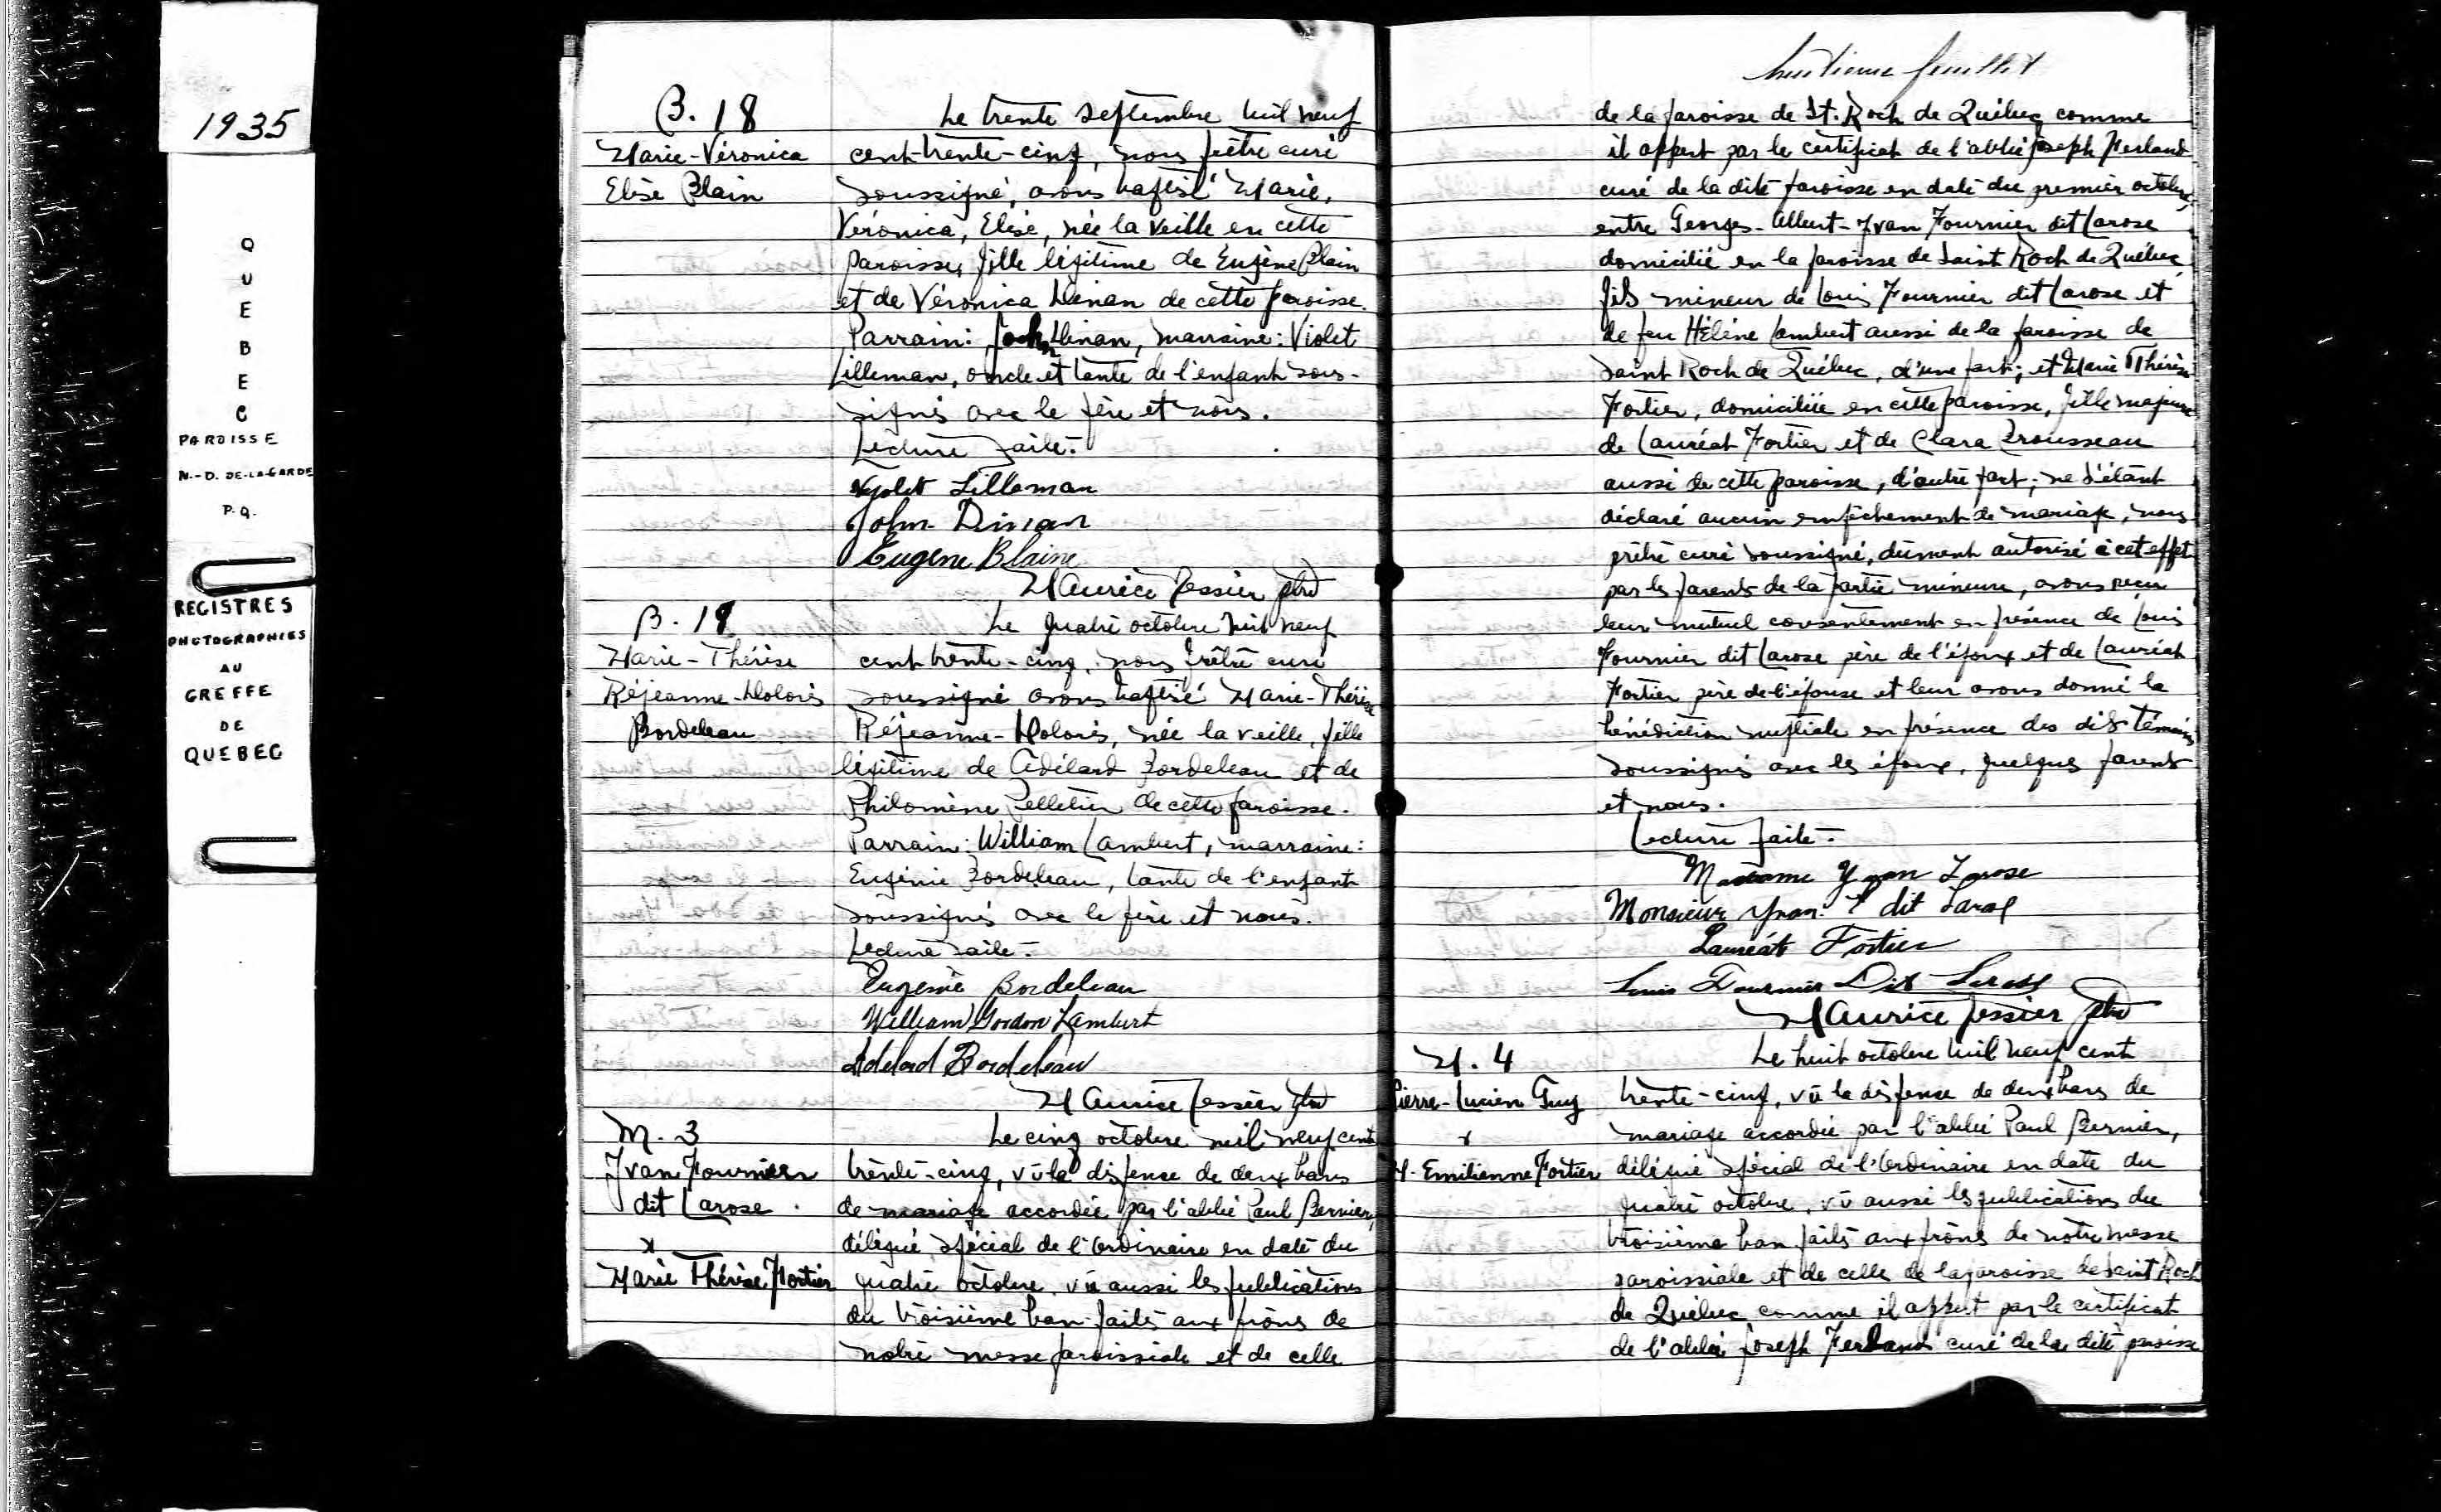 1935
QUEBEC
PAROISSE
N.-D. DE-LA-GARDE
P.Q.
REGISTRES
PHOTOGRAPHIES
AU
GREFFE
DE
QUEBEC
B. 18
Marie-Véronica
Elise Blain
Le trente septembre mil neuf
cent-trente-cinq, nous prêtre curé
soussigné, avons baptisé Marie,
Véronica, Elise, née la veille en cette
paroisse, fille légitime de Eugène Blain
et de Véronica Dinan de cette paroisse.
Parrain: John Dinan, marraine: Violet
Lilleman, oncle et tante de l'enfant sous-
signés avec le père et nous.
Lecture faite.
Vyolet Lilleman
John Dinan
Eugene Blaine
Maurice Tessier ptre
B. 19
Marie-Thérèse
Réjeanne-Dolorès
Bordeleau
Le quatre octobre mil neuf
cent trente-cinq, nous prêtre curé
soussigné avons baptisé Marie-Thérèse
Réjeanne-Dolorès, née la veille, fille
légitime de Adélard Bordeleau et de
Philomène Pelletier de cette paroisse.
Parrain: William Lambert, marraine:
Eugénie Bordeleau, tante de l'enfant
soussignés avec le père et nous.
Lecture faite.
Eugenie Bordeleau
William Gordon Lambert
Adelard Bordeleau
Maurice Tessier ptre
M. 3
Ivan Fournier
dit Larose
x
Marie Thérèse Fortier
Le cinq octobre mil neuf cent
trente-cinq, vû la dispense de deux bans
de mariage accordée par l'abbé Paul Bernier,
délégué spécial de l'Ordinaire en date du
quatre octobre, vû aussi les publications
du troisième ban faites aux prônes de
notre messe paroissiale et de celle
huitieme feuillet
de la paroisse de St. Roch de Québec comme
il appert par le certificat de l'abbé Joseph Ferland
curé de la dite paroisse en date du premier octobre,
entre Georges-Albert-Ivan Fournier dit Larose
domicilié en la paroisse de Saint Roch de Québec,
fils mineur de Louis Fournier dit Larose et
de feu Hélène Lambert aussi de la paroisse de
Saint Roch de Québec, d'une part; et Marie Thérèse
Fortier, domiciliée en cette paroisse, fille majeure
de Lauréat Fortier et de Clara Brousseau
aussi de cette paroisse, d'autre part; ne s'étant
déclaré aucun empêchement de mariage, nous
prêtre curé soussigné, dûment autorisé à cet effet
par les parents de la partie mineure, avons reçu
leur mutuel consentement en présence de Louis
Fournier dit Larose père de l'époux et de Lauréat
Fortier père de l'épouse et leur avons donné la
bénédiction nuptiale en présence des dits témoins
soussignés avec les époux, quelques parents
et nous.
Lecture faite.
Madame Yvan Larose
Monsieur Yvan F dit Larose
Lauréat Fortier
Louis Fournier Dit Larose
Maurice Tessier ptre
M. 4
Pierre-Lucien Guy
x
M-Emilienne Fortier
Le huit octobre mil neuf cent
trente-cinq, vû la dispense de deux bans de
mariage accordée par l'abbé Paul Bernier,
délégué spécial de l'Ordinaire en date du
quatre octobre, vû aussi les publications du
troisième ban faites aux prônes de notre messe
paroissiale et de celle de la paroisse de Saint Roch
de Québec comme il appert par le certificat
de l'abbé Joseph Ferland curé de la dite paroisse